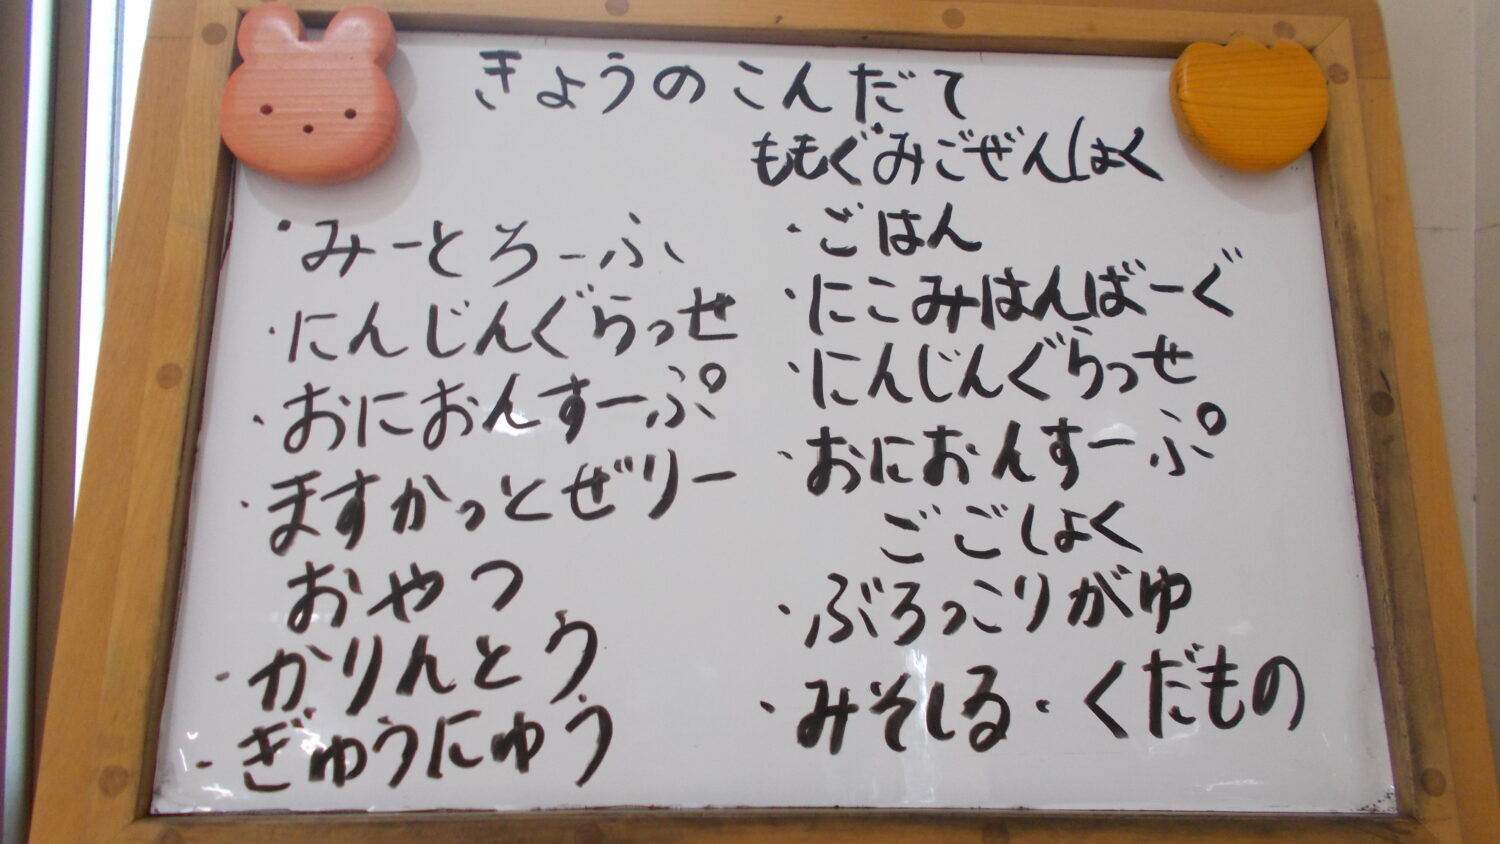 きょうのこんだて
・みーとろーふ
・にんじんぐらっせ
・おにおんすーぷ
・ますかっとぜりー
おやつ
・かりんとう
・ぎゅうにゅう
ももぐみごぜんしょく
・ごはん
・にこみはんばーぐ
・にんじんぐらっせ
・おにおんすーぷ
ごごしょく
・ぶろっこりがゆ
・みそしる・くだもの